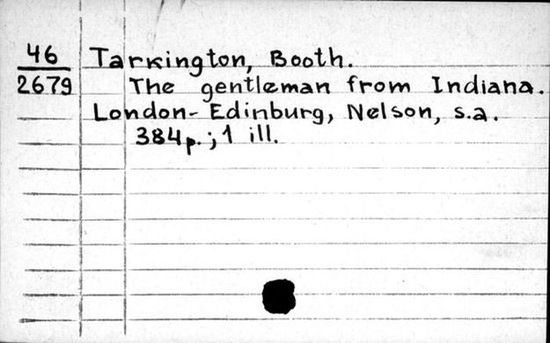 46 Tarkington, Booth.
2679 The gentleman from Indiana.
London-Edinburg, Nelson, s.a.
384p.; 1 ill.